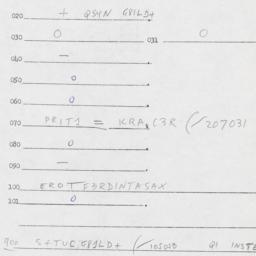 020 + QSYN G81LD+
030 O 031 O
040 —
050 0
060 0
070 PRIT1 = KRA,C3R (/207031
080 0
090 —
100 EROTF3RDINTASAX
101 0
900 S+TUC,G81LD+ (/105020 Q1 INSTE